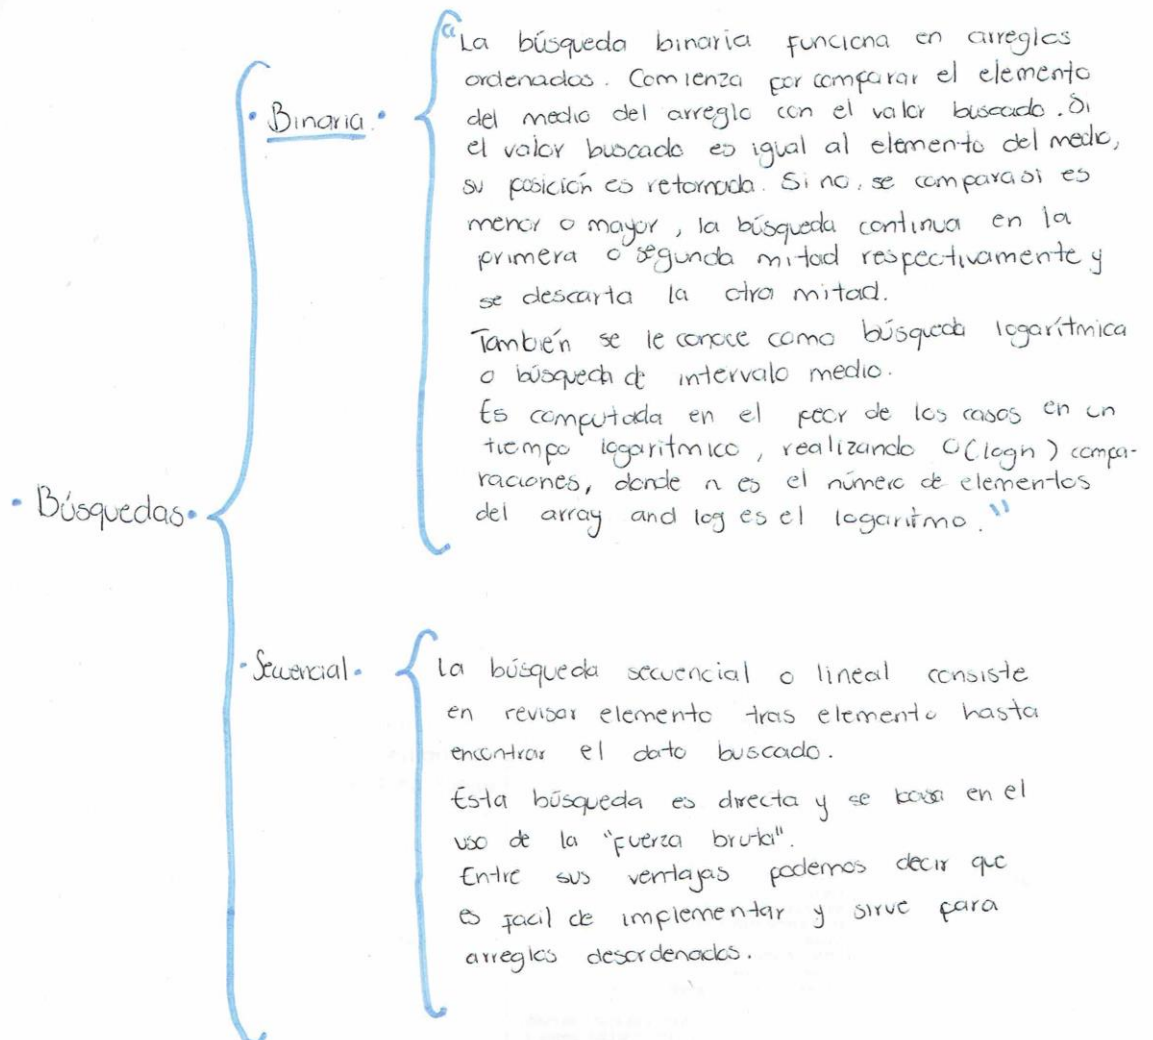 • Búsquedas •
• Binaria •
“La búsqueda binaria funciona en arreglos
ordenados. Comienza por comparar el elemento
del medio del arreglo con el valor buscado. Si
el valor buscado es igual al elemento del medio,
su posición es retornada. Si no, se compara si es
menor o mayor, la búsqueda continua en la
primera o segunda mitad respectivamente y
se descarta la otra mitad.
También se le conoce como búsqueda logarítmica
o búsqueda de intervalo medio.
Es computada en el peor de los casos en un
tiempo logaritmico, realizando O(logn) compa-
raciones, donde n es el número de elementos
del array and log es el logaritmo.”
• Secuencial •
La búsqueda secuencial o lineal consiste
en revisar elemento tras elemento hasta
encontrar el dato buscado.
Esta búsqueda es directa y se basa en el
uso de la "fuerza bruta".
Entre sus ventajas podemos decir que
es facil de implementar y sirve para
arreglos desordenados.